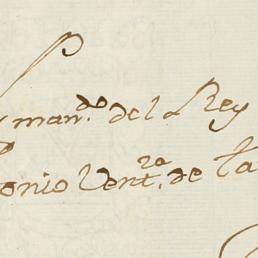 man.do del Rey
onio Vent.ra de Ta